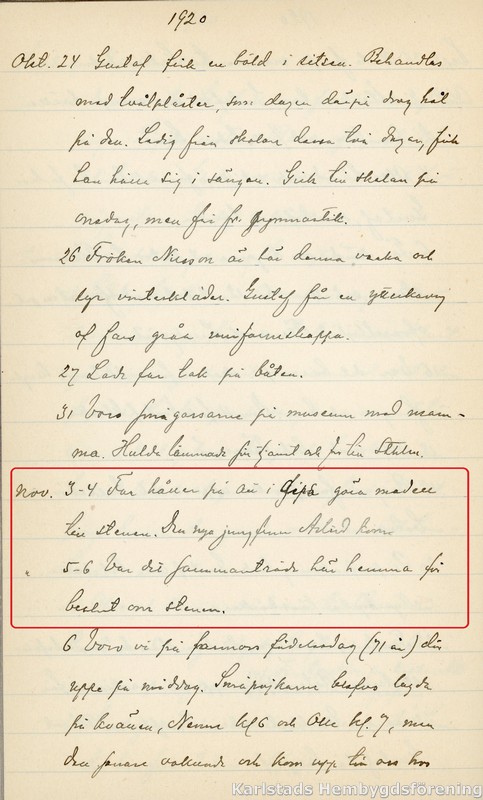 1920
Okt. 24 Gustaf fick en böld i sitsen. Behandlas
med tvålplåster, som dagen därpå drog hål
på den. Ledig från skolan dessa två dagar, fick
han hålla sig i sängen. Gick till skolan på
onsdag, men fri fr. gymnastik.
26 Fröken Nilsson är här denna vecka och
syr vinterkläder. Gustaf får en ytterkavaj
af fars gråa uniformskappa.
27 Lade far tak på båten.
31 Voro smågossarne på museum med mam-
ma. Hulda lämnade sin tjänst och for till Sthlm.
Nov. 3-4 Far håller på att i Gips göra modell
till stenen. Den nya jungfrun Astrid kom
" 5-6 Var det sammanträde här hemma för
beslut om stenen.
6 Voro vi på farmors födelsedag (71 år) där
uppe på middag. Småpojkarne blefvo lagda
på kvällen, Nenne kl 6 och Olle kl. 7, men
den senare vaknade och kom upp till oss hos
Karlstads Hembygdsförening